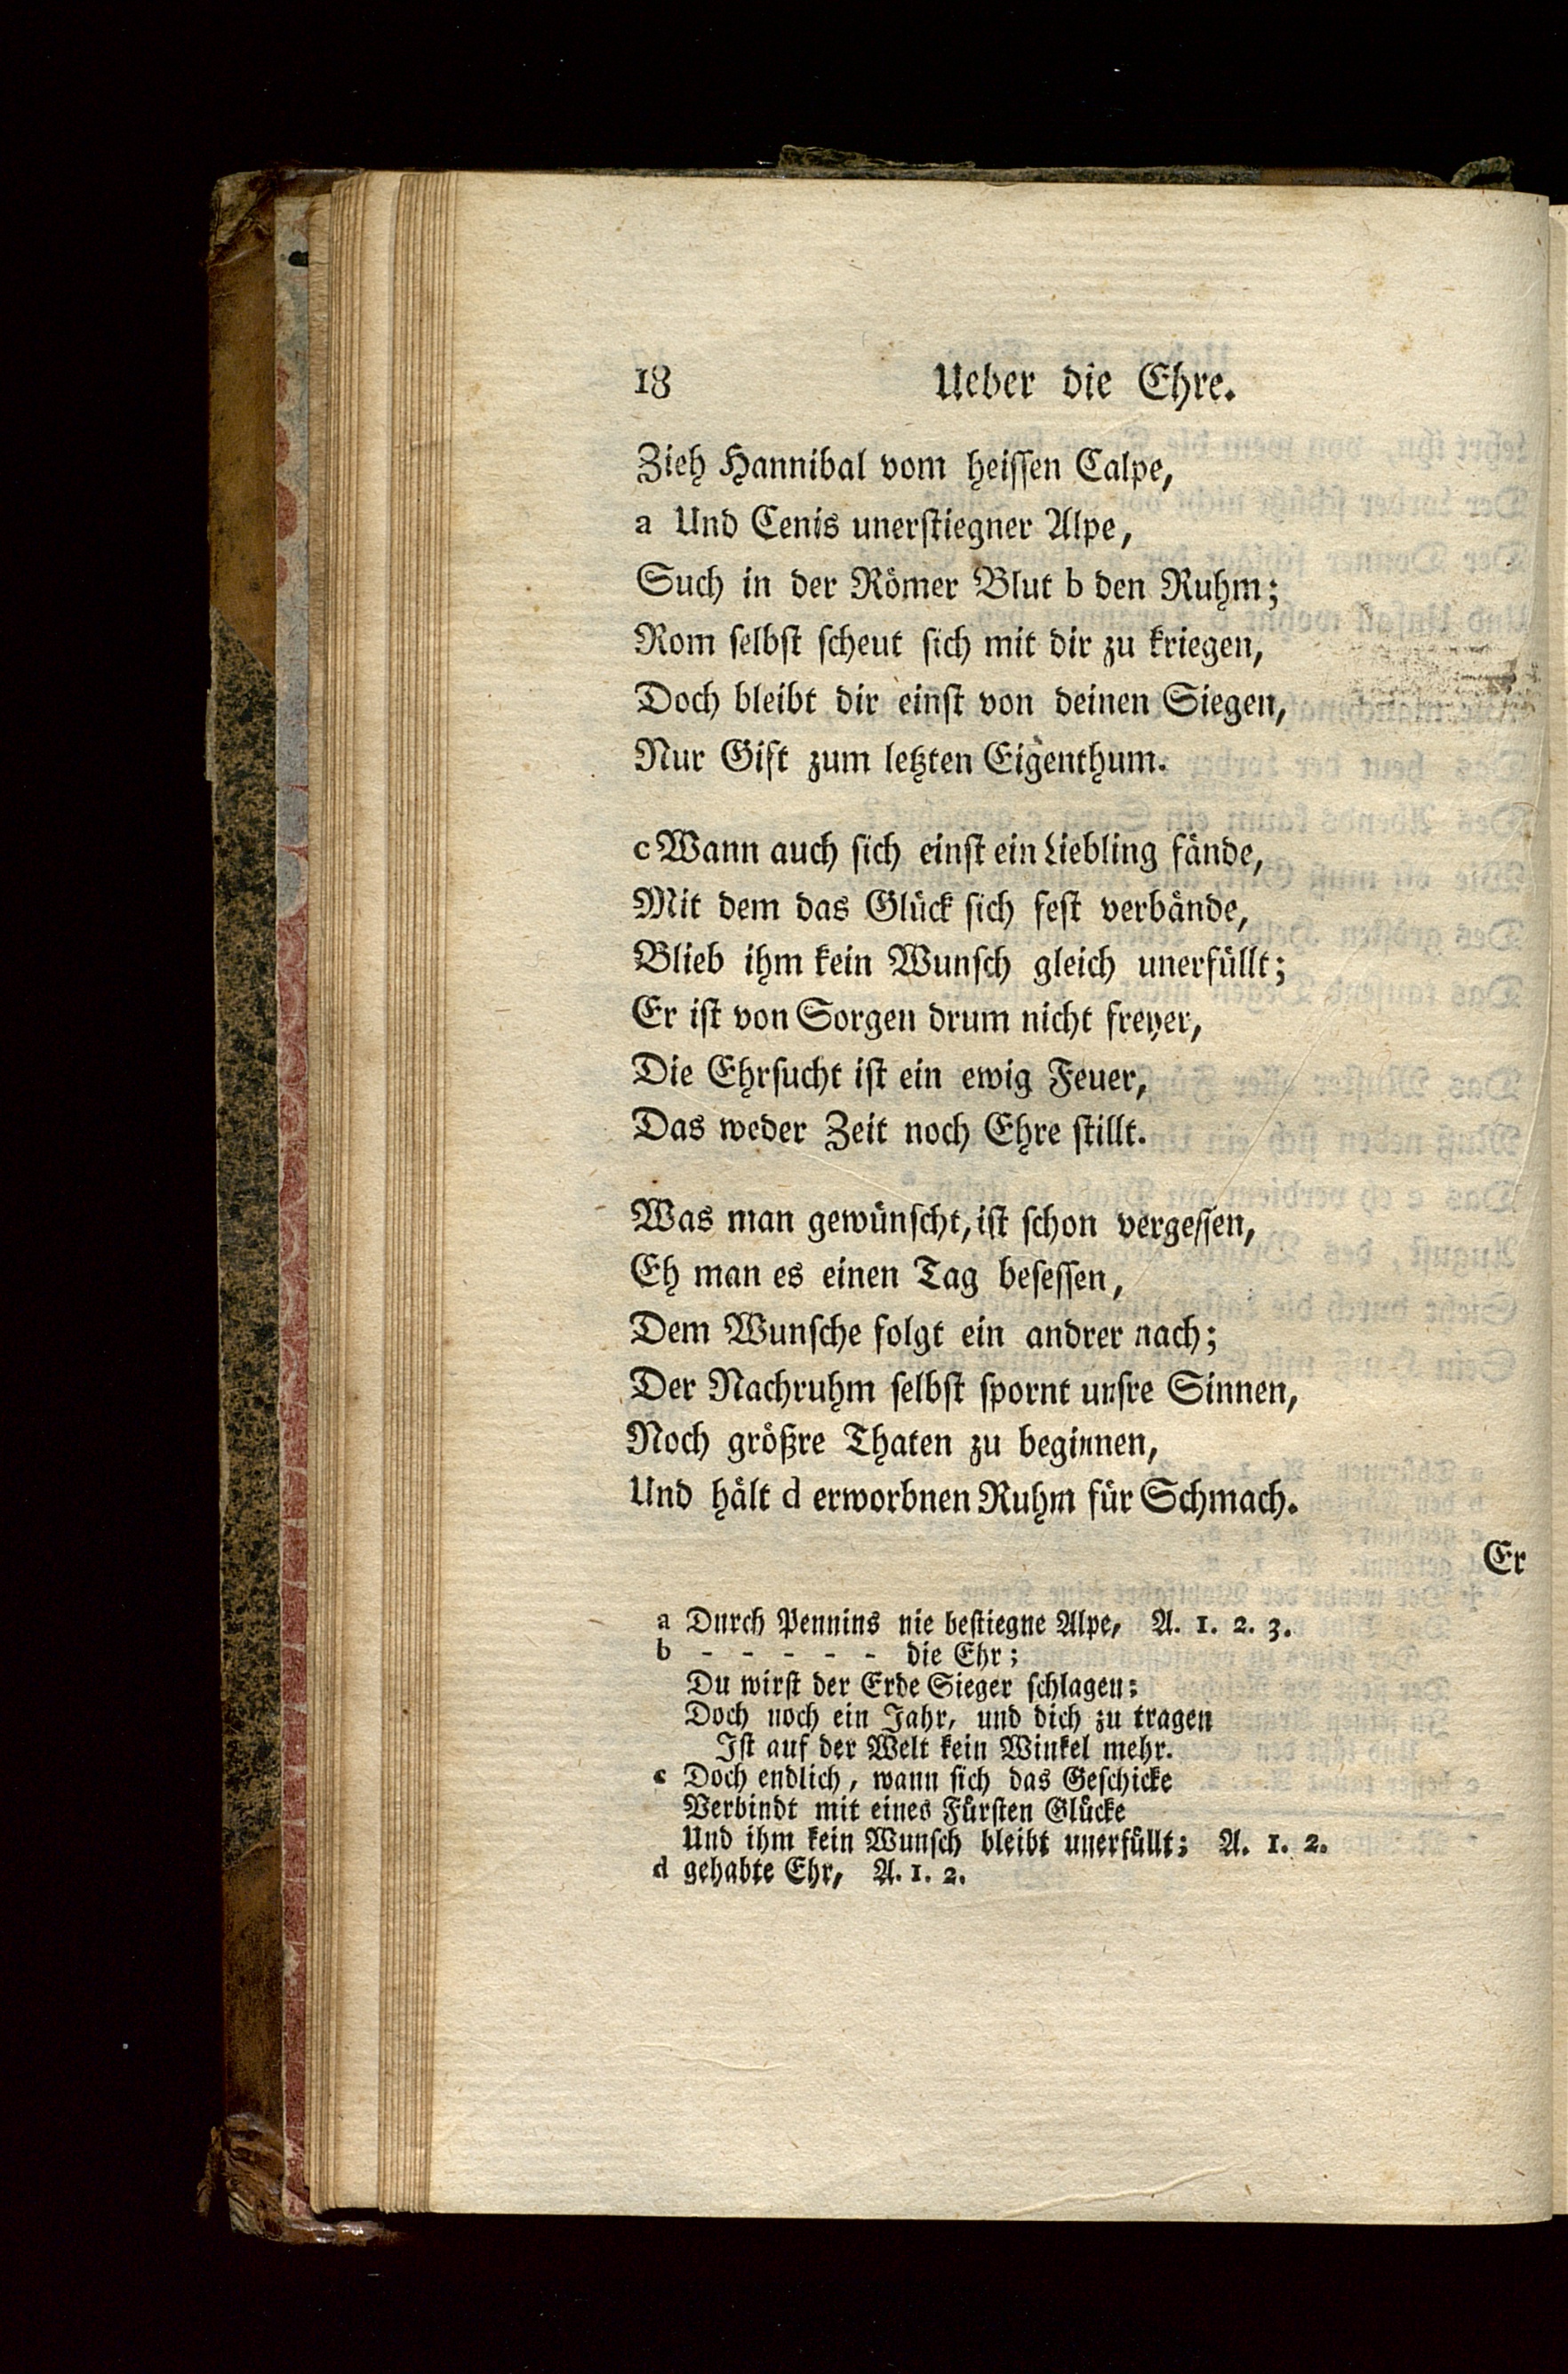 18 Ueber die Ehre.
Zieh Hannibal vom heiſſen Calpe,
a Und Cenis unerſtiegner Alpe,
Such in der Römer Blut b den Ruhm;
Rom ſelbſt ſcheut ſich mit dir zu kriegen,
Doch bleibt dir einſt von deinen Siegen,
Nur Gift zum letzten Eigenthum.
c Wann auch ſich einſt ein Liebling fände,
Mit dem das Glück ſich feſt verbände,
Blieb ihm kein Wunſch gleich unerfüllt;
Er iſt von Sorgen drum nicht freyer,
Die Ehrſucht iſt ein ewig Feuer,
Das weder Zeit noch Ehre ſtillt.
Was man gewünſcht, iſt ſchon vergeſſen,
Eh man es einen Tag beſeſſen,
Dem Wunſche folgt ein andrer nach;
Der Nachruhm ſelbſt ſpornt unſre Sinnen,
Noch größre Thaten zu beginnen,
Und hält d erworbnen Ruhm für Schmach.
Er
a Durch Pennins nie beſtiegne Alpe, A. 1. 2. 3.
b - - - - - die Ehr;
Du wirſt der Erde Sieger ſchlagen;
Doch noch ein Jahr, und dich zu tragen
Iſt auf der Welt kein Winkel mehr.
c Doch endlich, wann ſich das Geſchicke
Verbindt mit eines Fürſten Glücke
Und ihm kein Wunſch bleibt unerfüllt; A. 1. 2.
d gehabte Ehr, A. 1. 2.